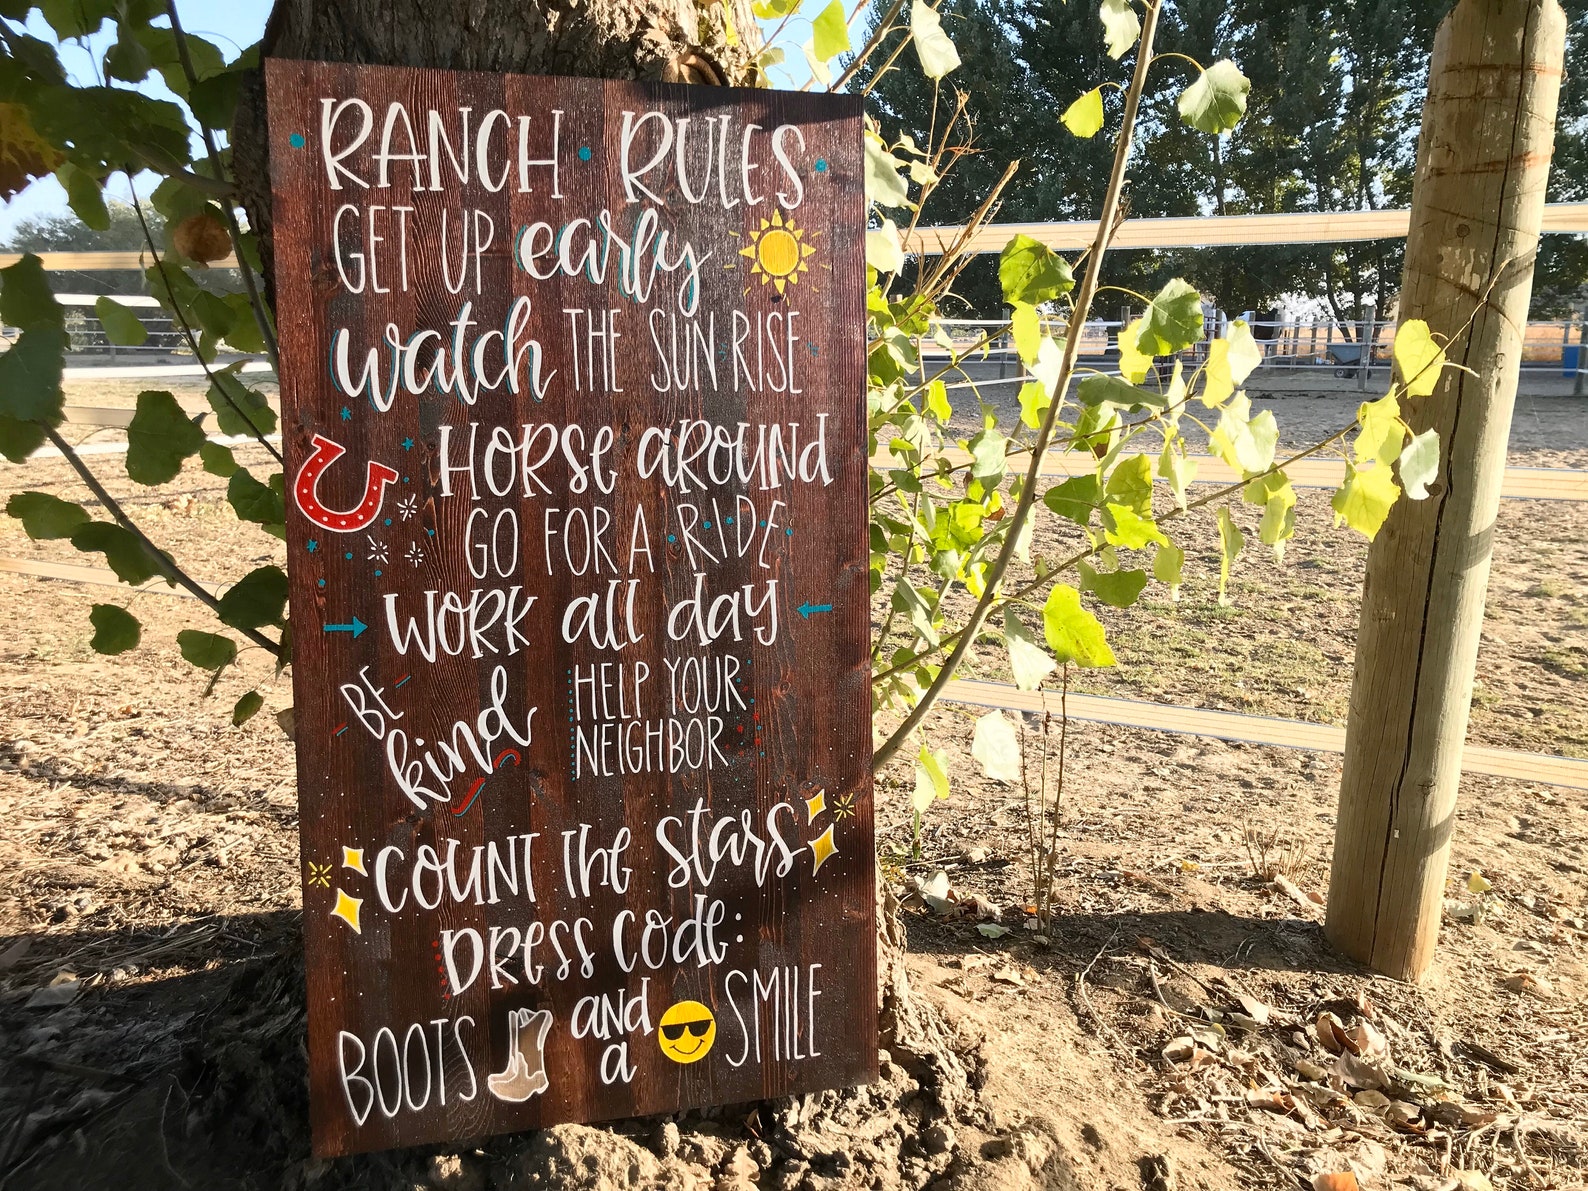 RANCH • RULES
GET UP early
watch THE SUN RISE
HORSE aROUNd
GO FOR A RIDE
WORK all day
BE kind
HELP YOUR
NEIGHBOR
COUNT the stars
DRess code:
BOOTS and a SMILE